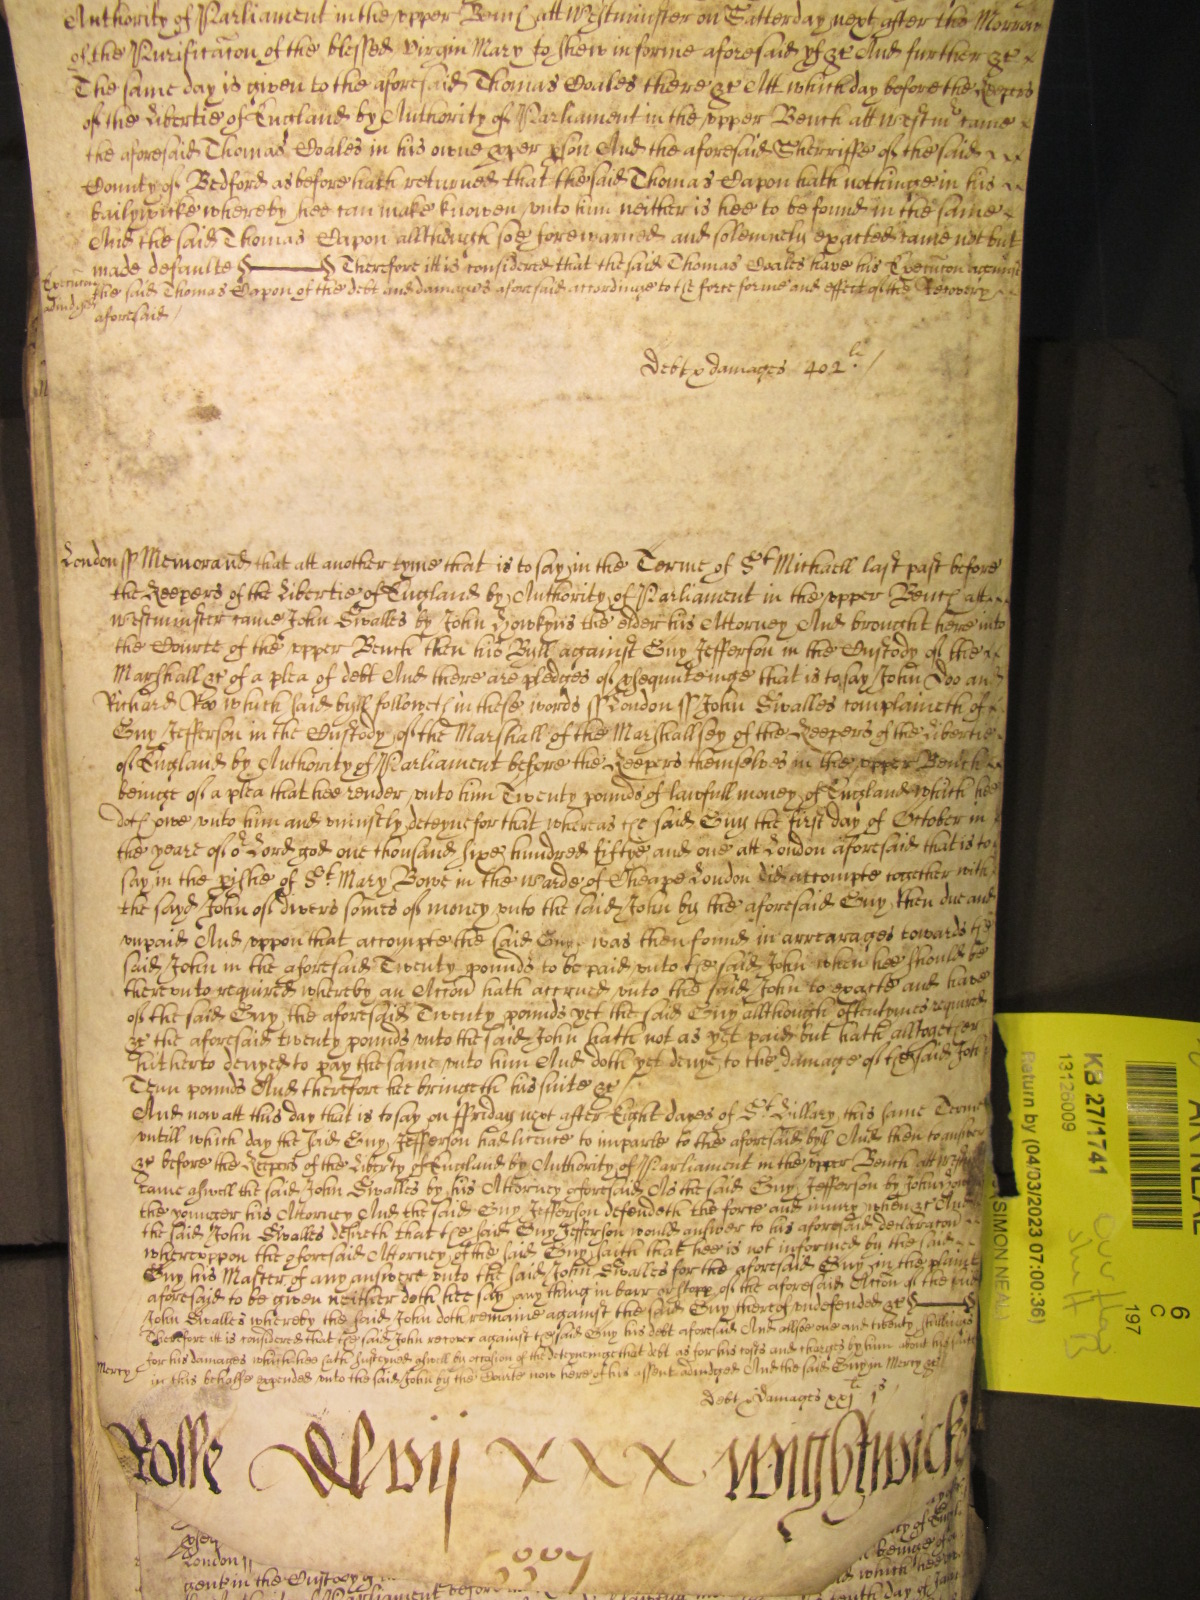 Authority of Parliament in the upper Bench att Westminster on Satterday next after the Morrow
of the Purificacon of the blessed Virgin Mary to shew in forme aforesaid yf &c And further &c
The same day is given to the aforesaid Thomas Coales there &c Att which day before the Keepers
of the Libertie of England by Authority of Parliament in the upper Bench att Westmr came
the aforesaid Thomas Coales in his owne pper pson And the aforesaid Sherriffe of the said
County of Bedford as before hath returned that the said Thomas Capon hath nothinge in his
bailywicke whereby hee can make knowen unto him neither is hee to be found in the same
And the said Thomas Capon allthough soe forewarned and solemnely exacted came not but
made defaulte Therefore itt is considered that the said Thomas Coales have his Execucon against
Execucon adiudged
the said Thomas Capon of the debt and damages aforesaid accordinge to the force forme and effect of the Recovery
aforesaid /
Debt & damages 402li /
London ss Memorand that att another tyme that is to say in the Terme of St Michaell last past before
the Keepers of the Libertie of England by Authority of Parliament in the upper Bench att
Westminster came John Swalles by John Howkyns the elder his Attorney And brought here into
the Courte of the upper Bench then his Byll against Guy Jefferson in the Custody of the
Marshall &c of a plea of debt And there are pledges of psequuteinge that is to say John Doo and
Richard Roo which said byll followeth in these words ss London ss John Swalles complaineth of
Guy Jefferson in the Custody of the Marshall of the Marshallsey of the Keepers of the Libertie
of England by Authority of Parliament before the Keepers themselves in the upper Bench
beinge of a plea that hee render unto him Twenty pounds of lawfull money of England which hee
doth owe unto him and uniustly deteyne for that whereas the said Guy the first day of October in
the yeare of or Lord god one thousand sixe hundred fiftye and one att London aforesaid that is to
say in the pishe of St Mary Bowe in the warde of Cheape London did accompte together with
the sayd John of divers somes of money unto the said John by the aforesaid Guy then due and
unpaid And uppon that accompte the said Guy was then found in arrearages towards the
said John in the aforesaid Twenty pounds to be paid unto the said John when hee should be
thereunto required whereby an Accon hath accrued unto the said John to exacte and have
of the said Guy the aforesaid Twenty pounds yet the said Guy allthough oftentymes required
&c the aforesaid twenty pounds unto the said John hath not as yet paid but hath alltogether
hitherto denyed to pay the same unto him And doth yet denye to the damage of the said John
Tenn pounds And therefore hee bringeth his suite &c /
And now att this day that is to say on ffriday next after Eight dayes of St Hillary this same Terme
untill which day the said Guy Jefferson had licence to imparle to the aforesaid byll And then to answer
&c before the Keepers of the Liberty of England by Authority of Parliament in the upper Bench att Westmr
came aswell the said John Swalles by his Attorney aforesaid As the said Guy Jefferson by John
the younger his Attorney And the said Guy Jefferson defendeth the force and iniury when &c And
the said John Swalles desireth that the said Guy Jefferson would answer to his aforesaid declaracon
whereuppon the aforesaid Attorney of the said Guy saith that hee is not informed by the said
Guy his Master of any answere unto the said John Swalles for the aforesaid Guy in the plainte
aforesaid to be given neither doth hee say any thing in barr or stopp of the aforesaid Accon of the said
John Swalles whereby the said John doth remaine against the said Guy thereof undefended &c
Therefore itt is considered that the said John recover against the said Guy his debt aforesaid And allsoe one and twenty shillings
for his damages which hee hath susteyned aswell by occasion of the deteyneinge that debt as for his costs and charges by him about his suite
Mercy
in this behalfe expended unto the said John by the Courte now here of his assent adiudged And the said Guy in Mercy &c
Debt & damages xxjli js /
Rolle xlvij x x x Wightwick
London
gent in the Custody
KB 27/1741
13126009
Return by (04/03/2023 07:00:36)
SIMON NEAL
6
C
197